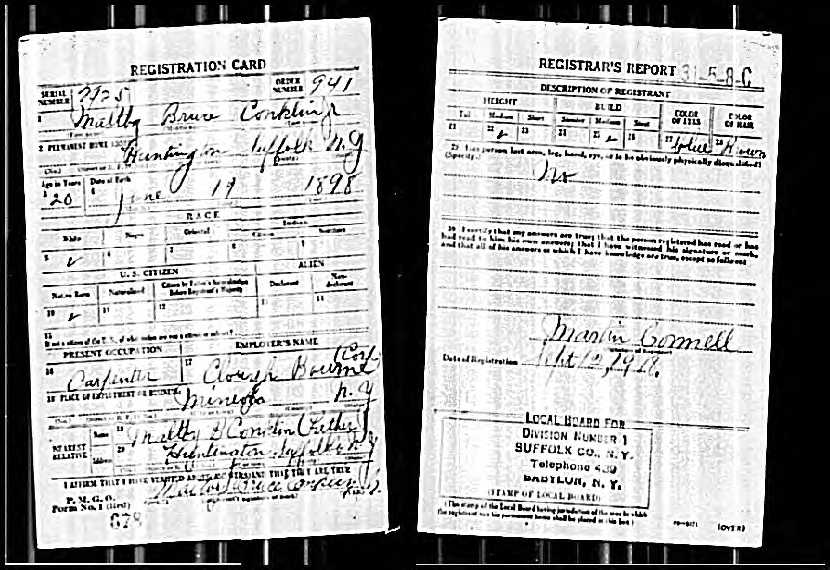 REGISTRATION CARD
SERIAL NUMBER
ORDER NUMBER 941
1 Maltby Bruce Conklin Jr
2 PERMANENT HOME ADDRESS
Huntington Suffolk N.Y
Age in Years Date of Birth
20 June 19 1898
RACE
White Negro Oriental Indian
Citizen
U. S. CITIZEN ALIEN
Native Born Naturalized Citizen by Father's Naturalization Before Registrant's Majority Declarant Non-declarant
10 11 12 13 14
15
If not a citizen of the U.S., of what nation are you a citizen or subject?
PRESENT OCCUPATION EMPLOYER'S NAME
16 Carpenter 17 Bourne Corp
18 PLACE OF EMPLOYMENT OR BUSINESS
Mineola N.Y
NEAREST RELATIVE
Name 19 Maltby B Conklin (Father)
Address 20 Huntington Suffolk N.Y
I AFFIRM THAT I HAVE VERIFIED ABOVE ANSWERS AND THAT THEY ARE TRUE
P. M. G. O.
Form No. 1 (Red)
REGISTRAR'S REPORT 31-5-8-C
DESCRIPTION OF REGISTRANT
HEIGHT BUILD COLOR OF EYES COLOR OF HAIR
Tall Medium Short Slender Medium Stout
21 22 23 24 25 26 27 Blue 28 Brown
29 Has person lost arm, leg, hand, eye, or is he obviously physically disqualified?
(Specify.)
No
30 I certify that my answers are true; that the person registered has read or has
had read to him his own answers; that I have witnessed his signature or mark,
and that all of his answers of which I have knowledge are true, except as follows:
Martin Connell
Date of Registration Sept 12, 1918.
LOCAL BOARD FOR
DIVISION NUMBER 1
SUFFOLK CO., N. Y.
Telephone 439
BABYLON, N. Y.
(STAMP OF LOCAL BOARD)
(The stamp of the Local Board having jurisdiction of the area in which
the registrant has his permanent home shall be placed in this box.)
(OVER)